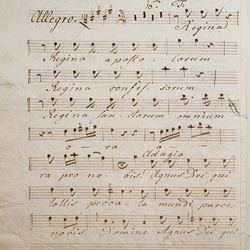 Allegro.
Regina
Regina aposto lorum
Regina confes. sorum
Regina san. ctorum omnium
o ra o
Adagio
ra pro no bis. Agnus Dei qui
tollis pecca. ta mundi parce
nobis Domine Agnus Dei qui